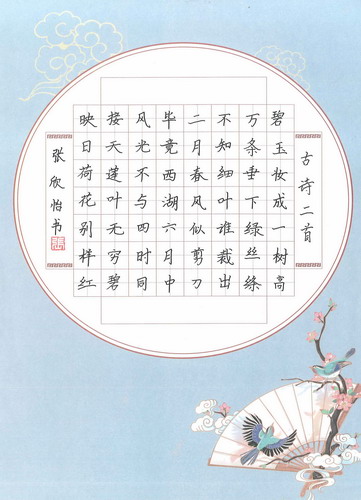 古诗二首
碧玉妆成一树高
万条垂下绿丝绦
不知细叶谁裁出
二月春风似剪刀
毕竟西湖六月中
风光不与四时同
接天莲叶无穷碧
映日荷花别样红
张欣怡书